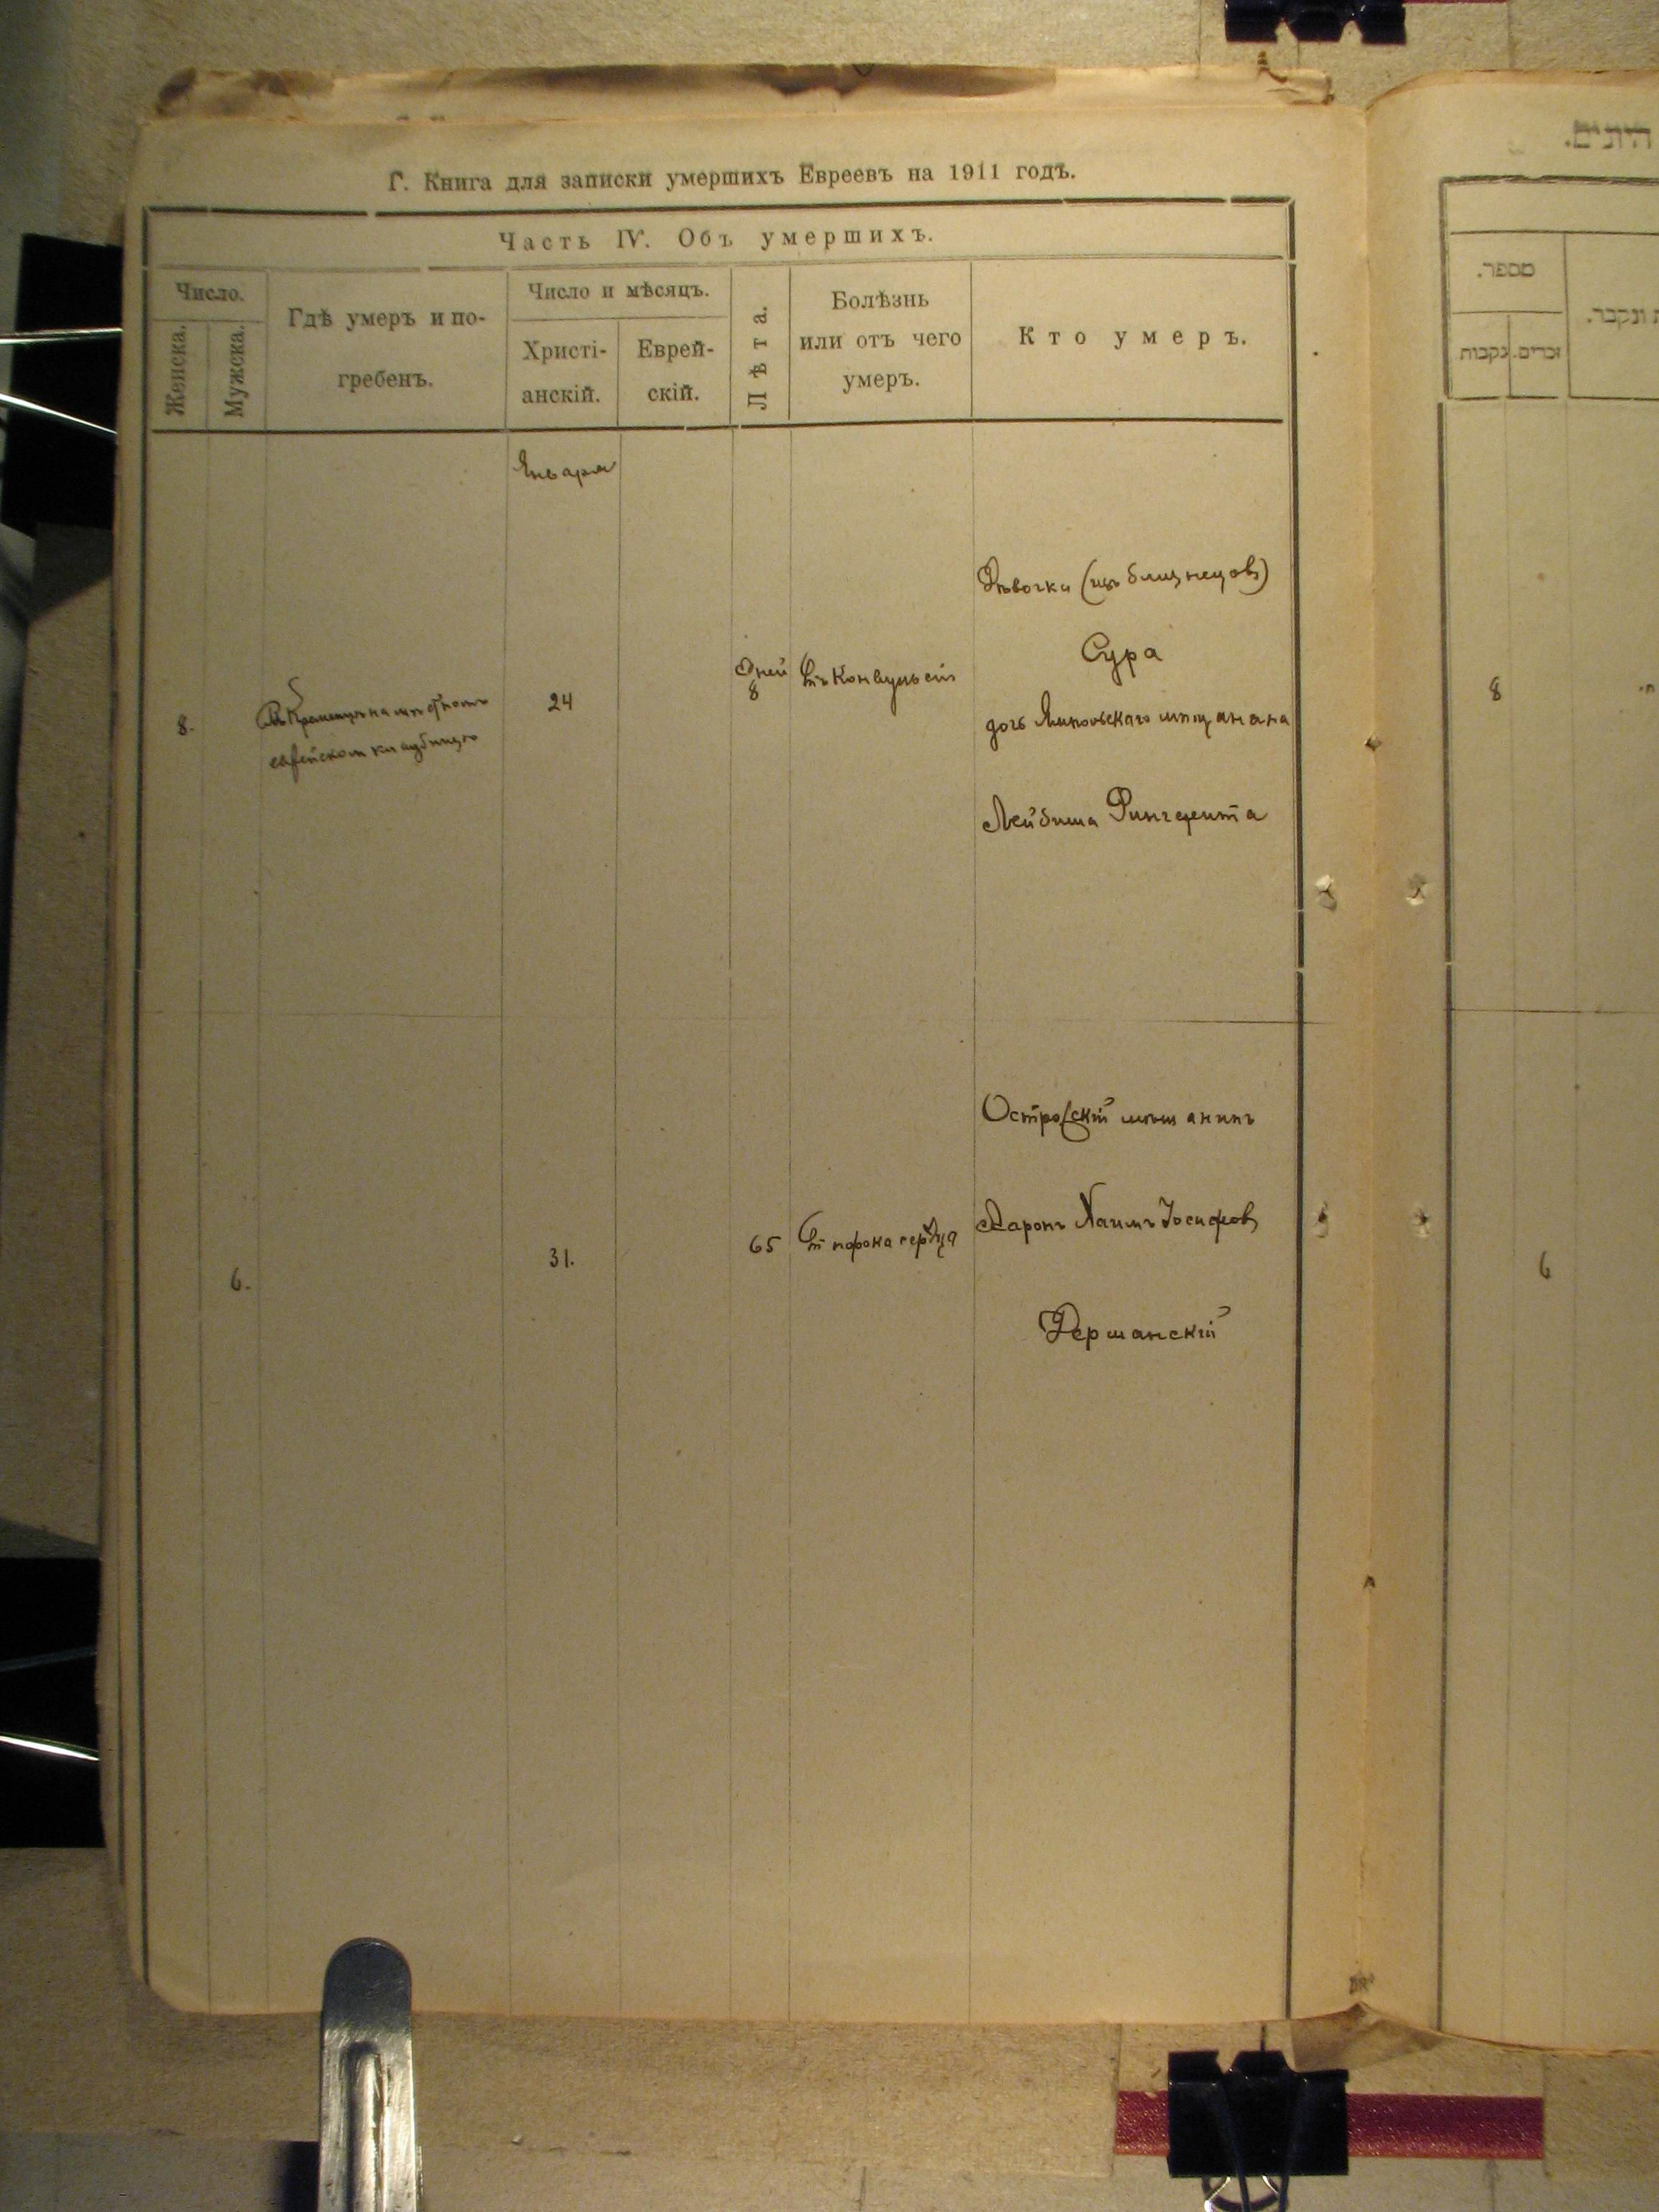 Г. Книга для записки умершихъ Евреевъ на 1911 годъ.
Часть IV. Объ умершихъ.
Число.
Женска.
Мужска.
Гдѣ умеръ и по-
гребенъ.
Число и мѣсяцъ.
Христі-
анскій.
Еврей-
скій.
Лѣта.
Болѣзнь
или отъ чего
умеръ.
Кто умеръ.
Января
8.
Въ Кременцѣ на мѣстномъ
еврейском кладбищѣ
24
Дней
8
Отъ Конвульсій
Дѣвочка (изъ близнецов)
Сура
дочь мѣщанина
Лейбиша
6.
31.
65
От порока сердца
Острожскій мѣщанинъ
Ааронъ Хаимъ Іосифов
Дерманскій
היתים.
מספר.
ונקבר.
נקבות
זכרים.
8
6